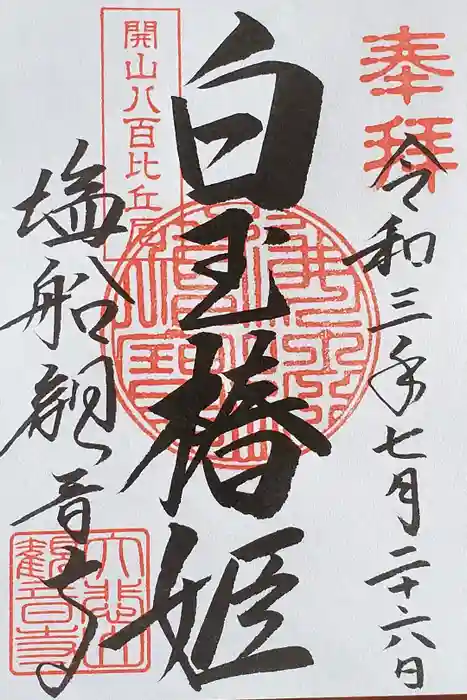 奉拝
令和三年七月二十六日
白玉椿姫
開山八百比丘尼
塩船観音寺
大悲山
観音寺